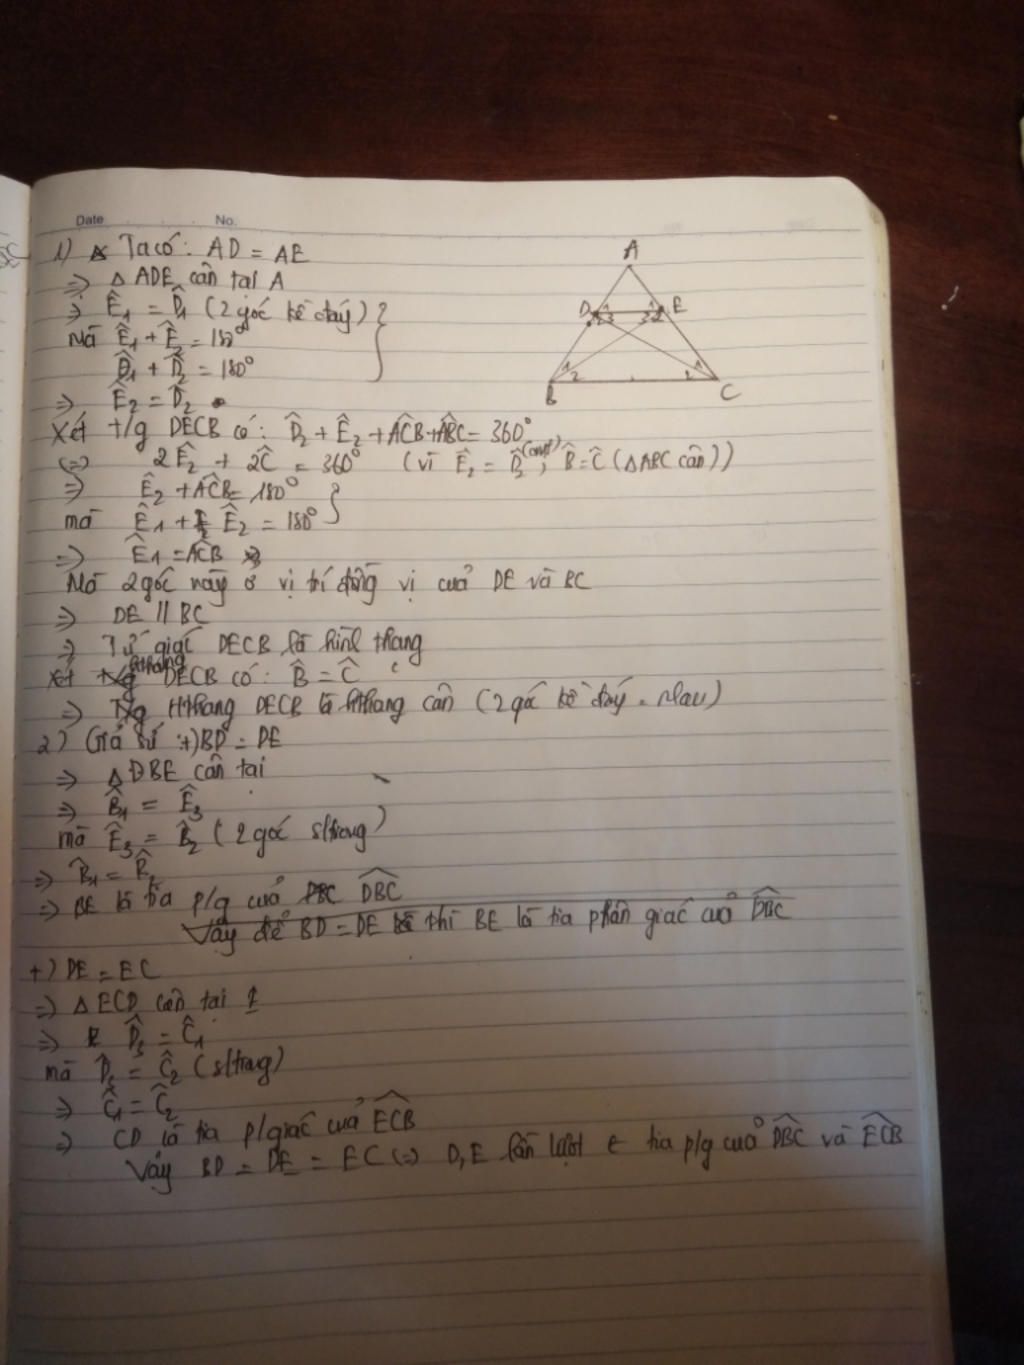 Date No.
1) Ta có: AD = AE
=> Δ ADE cân tại A
=> Ê1 = D̂1 (2 góc kề đáy)
Mà Ê1 + Ê2 = 180°
D̂1 + D̂2 = 180°
=> Ê2 = D̂2
Xét t/g DECB có: D̂2 + Ê2 + AĈB + AB̂C = 360°
(=) 2Ê2 + 2Ĉ = 360° (vì Ê2 = D̂2 (cmt), B̂ = Ĉ (ΔABC cân))
=> Ê2 + AĈB = 180°
mà Ê1 + Ê2 = 180°
=> Ê1 = AĈB
Mà 2 góc này ở vị trí đồng vị cuả DE và BC
=> DE // BC
=> Tứ giác DECB là hình thang
Xét hthang DECB có: B̂ = Ĉ
=> Hthang DECB là hthang cân (2 góc kề đáy = nhau)
2) Giả sử +) BD = DE
=> Δ DBE cân tại
=> B̂1 = Ê3
mà Ê3 = B̂2 (2 góc sltrong)
=> B̂1 = B̂2
=> BE là tia p/g cuả DBC
Vậy để BD = DE thì BE là tia phân giác cuả DBC
+) DE = EC
=> Δ ECD cân tại
=> D̂3 = Ĉ1
mà D̂3 = Ĉ2 (sltrong)
=> Ĉ1 = Ĉ2
=> CD là tia p/giác cuả ECB
Vậy BD = DE = EC (=) D, E lần lượt ∈ tia p/g cuả DBC và ECB
A
D 1 2 3
3 2 1 E
1 2
2 1
B
C